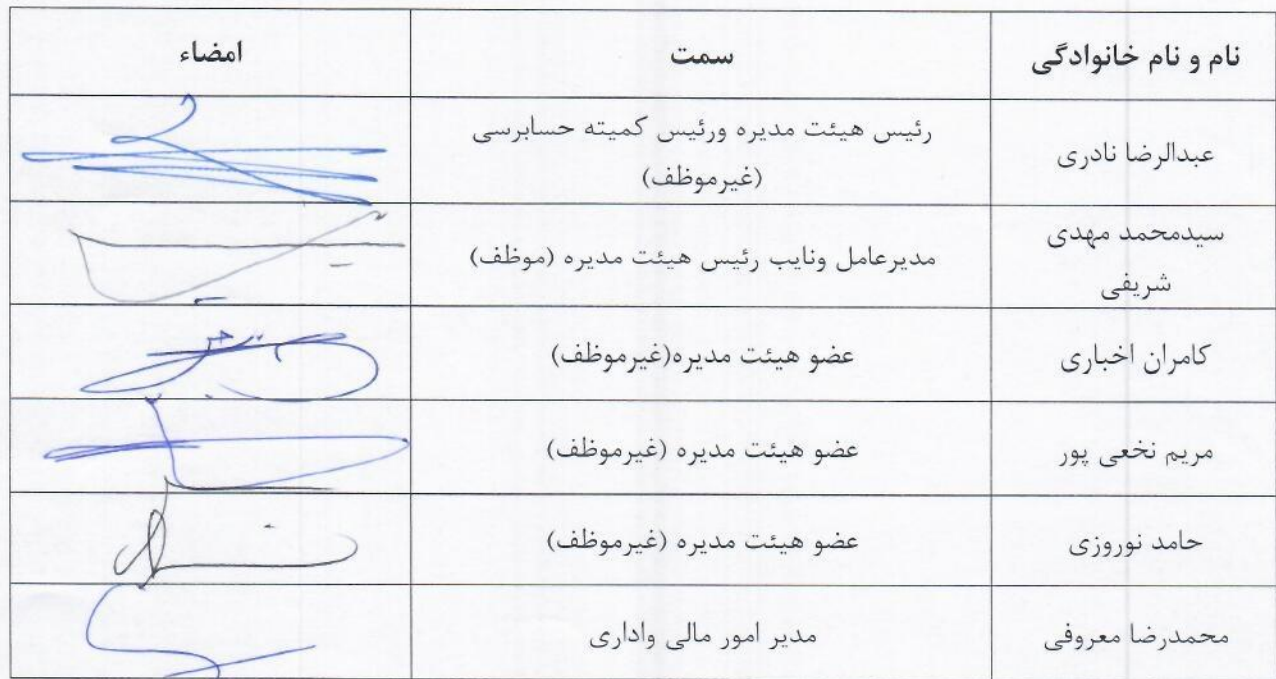 نام و نام خانوادگی سمت امضاء
عبدالرضا نادری رئیس هیئت مدیره ورئیس کمیته حسابرسی
(غیرموظف)
سیدمحمد مهدی
شریفی مدیرعامل ونایب رئیس هیئت مدیره (موظف)
کامران اخباری عضو هیئت مدیره(غیرموظف)
مریم نخعی پور عضو هیئت مدیره (غیرموظف)
حامد نوروزی عضو هیئت مدیره (غیرموظف)
محمدرضا معروفی مدیر امور مالی واداری